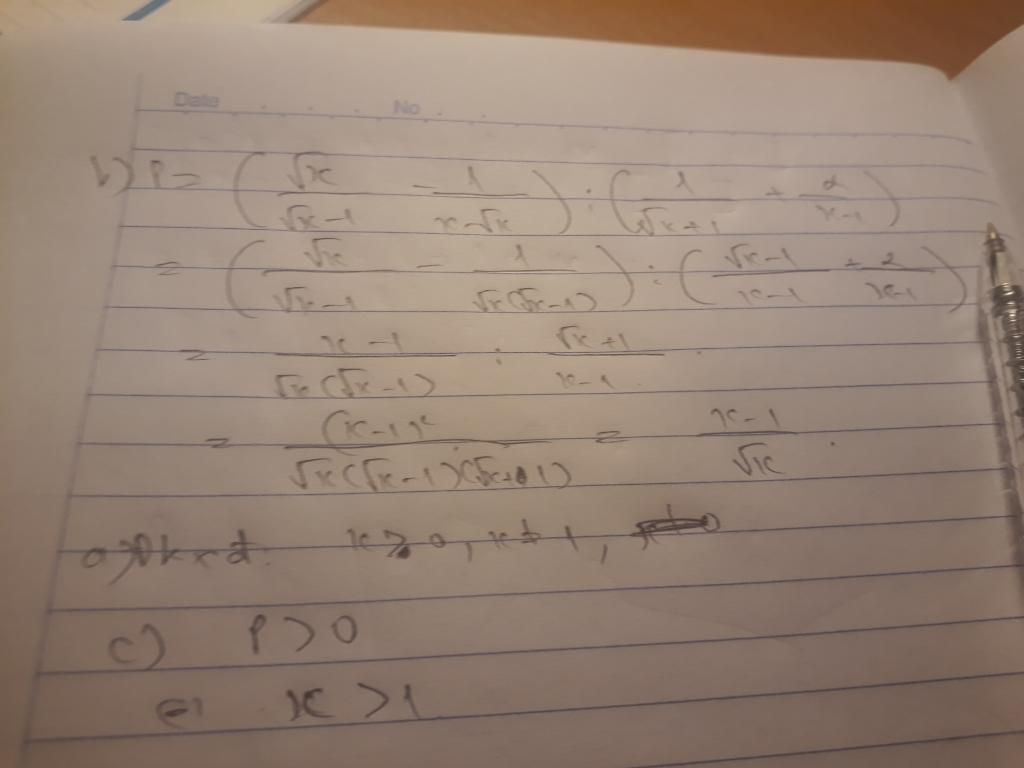 Date No
b) P = (√x/(√x-1) - 1/(x-√x)) : (1/(√x+1) + 2/(x-1))
= (√x/(√x-1) - 1/(√x(√x-1))) : ((√x-1)/(x-1) + 2/(x-1))
= (x-1)/(√x(√x-1)) : (√x+1)/(x-1).
= (x-1)²/(√x(√x-1)(√x+1)) = (x-1)/√x.
a) Đkxđ: x > 0, x ≠ 1,
c) P > 0
x > 1